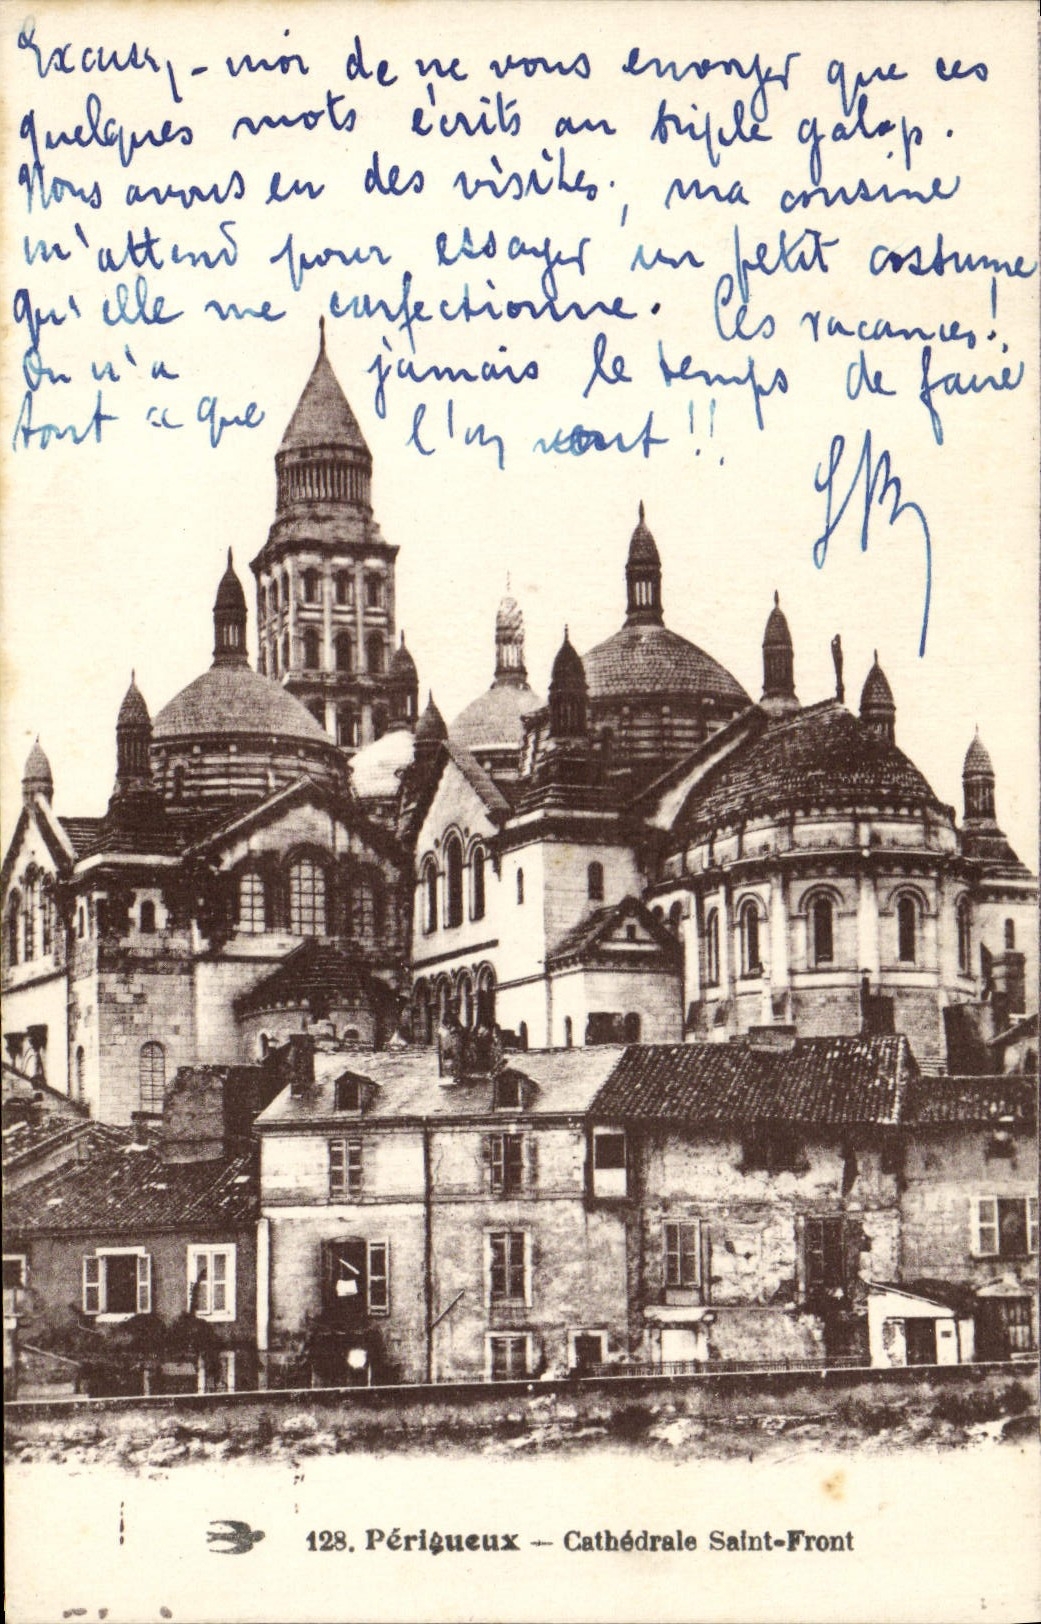 Excusez-moi de ne vous envoyer que ces
quelques mots écrits au triple galop.
Nous avons eu des visites, ma cousine
m'attend pour essayer un petit costume
qu'elle me confectionne. Ces vacances!
On n'a jamais le temps de faire
tout ce que l'on veut!!
128. Périgueux — Cathédrale Saint-Front